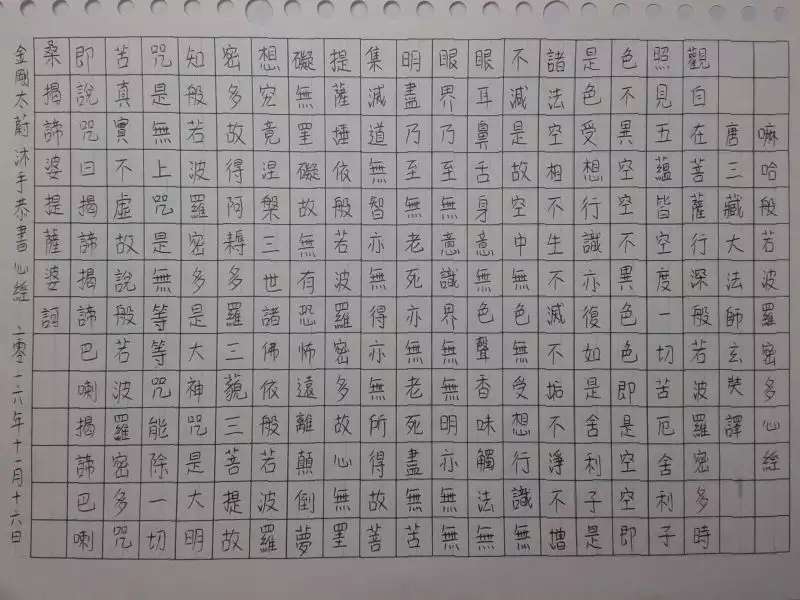 嘛哈般若波羅密多心經
唐三藏大法師玄奘譯
觀自在菩薩行深般若波羅密多時
照見五蘊皆空度一切苦厄舍利子
色不異空空不異色色即是空空即
是色受想行識亦復如是舍利子是
諸法空相不生不滅不垢不淨不增
不減是故空中無色無受想行識無
眼耳鼻舌身意無色聲香味觸法無
眼界乃至無意識界無無明亦無無
明盡乃至無老死亦無老死盡無苦
集滅道無智亦無得亦無所得故菩
提薩埵依般若波羅密多故心無罣
礙無罣礙故無有恐怖遠離顛倒夢
想究竟涅槃三世諸佛依般若波羅
密多故得阿耨多羅三藐三菩提故
知般若波羅密多是大神咒是大明
咒是無上咒是無等等咒能除一切
苦真實不虛故說般若波羅密多咒
即說咒曰揭諦揭諦巴喇揭諦巴喇
桑揭諦婆提薩婆訶
金剛太蔚沐手恭書心經 二零一六年十一月十六日